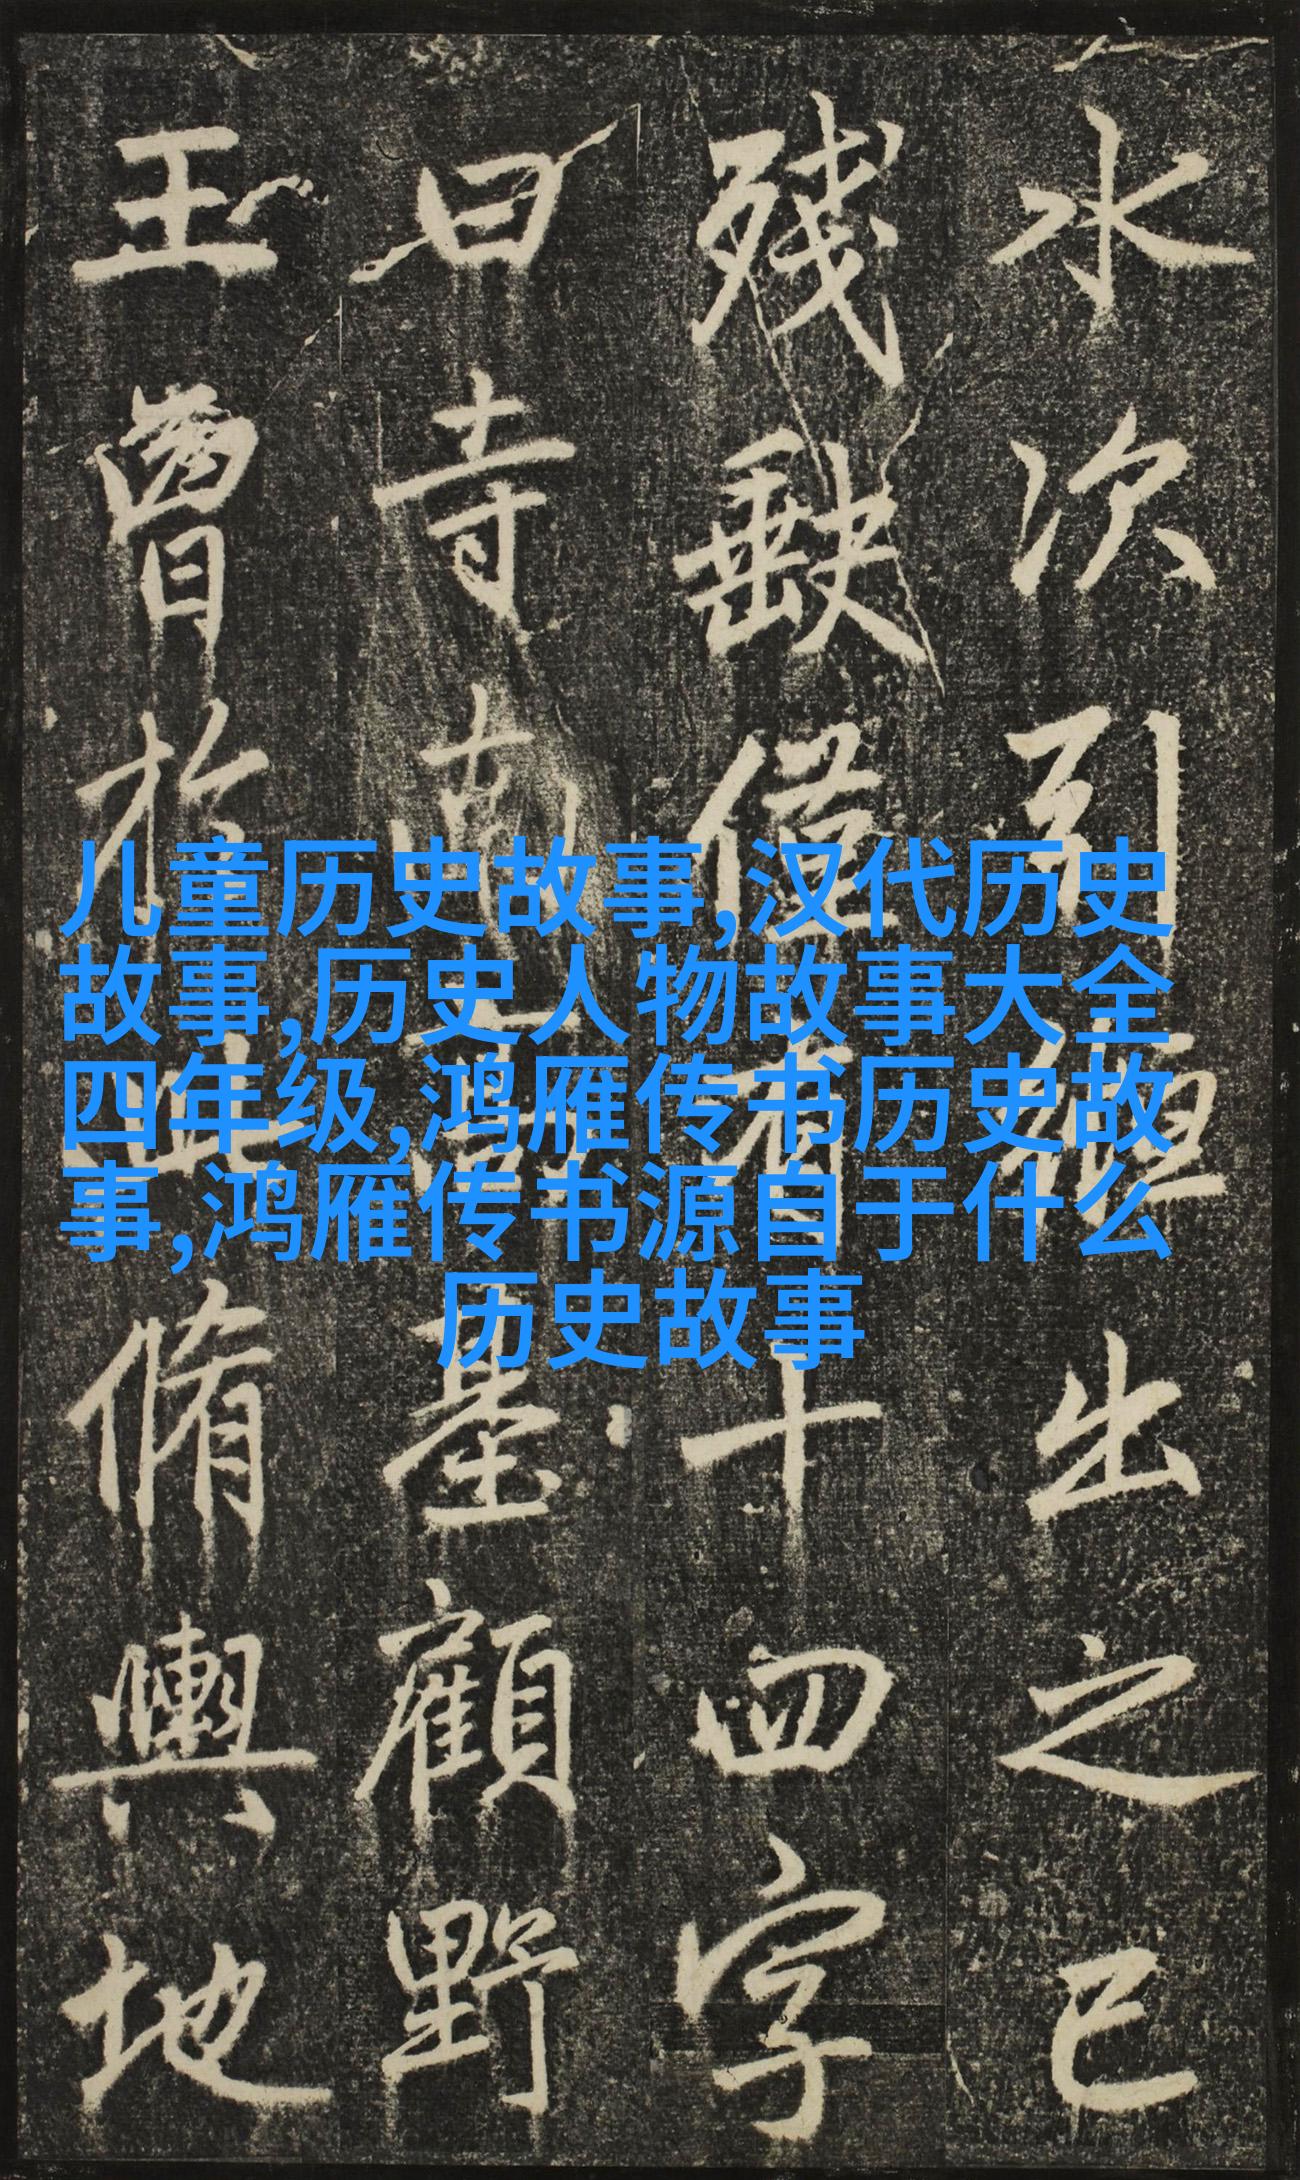 水次引出之已
殘缺僅有十四字
曰寺南高基顧野
王曾於此脩輿地
儿童历史故事,汉代历史
故事,历史人物故事大全
四年级,鸿雁传书历史故
事,鸿雁传书源自于什么
历史故事